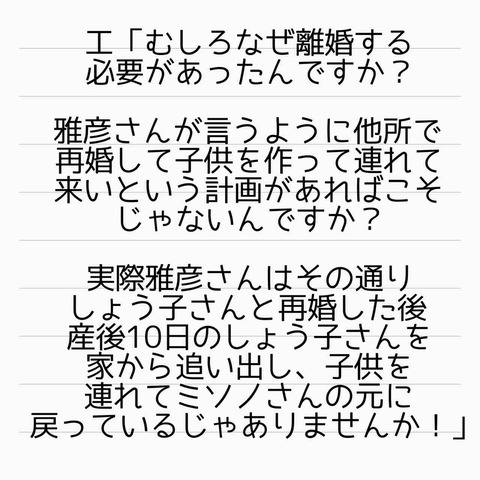 工「むしろなぜ離婚する
必要があったんですか？
雅彦さんが言うように他所で
再婚して子供を作って連れて
来いという計画があればこそ
じゃないんですか？
実際雅彦さんはその通り
しょう子さんと再婚した後
産後10日のしょう子さんを
家から追い出し、子供を
連れてミソノさんの元に
戻っているじゃありませんか！」